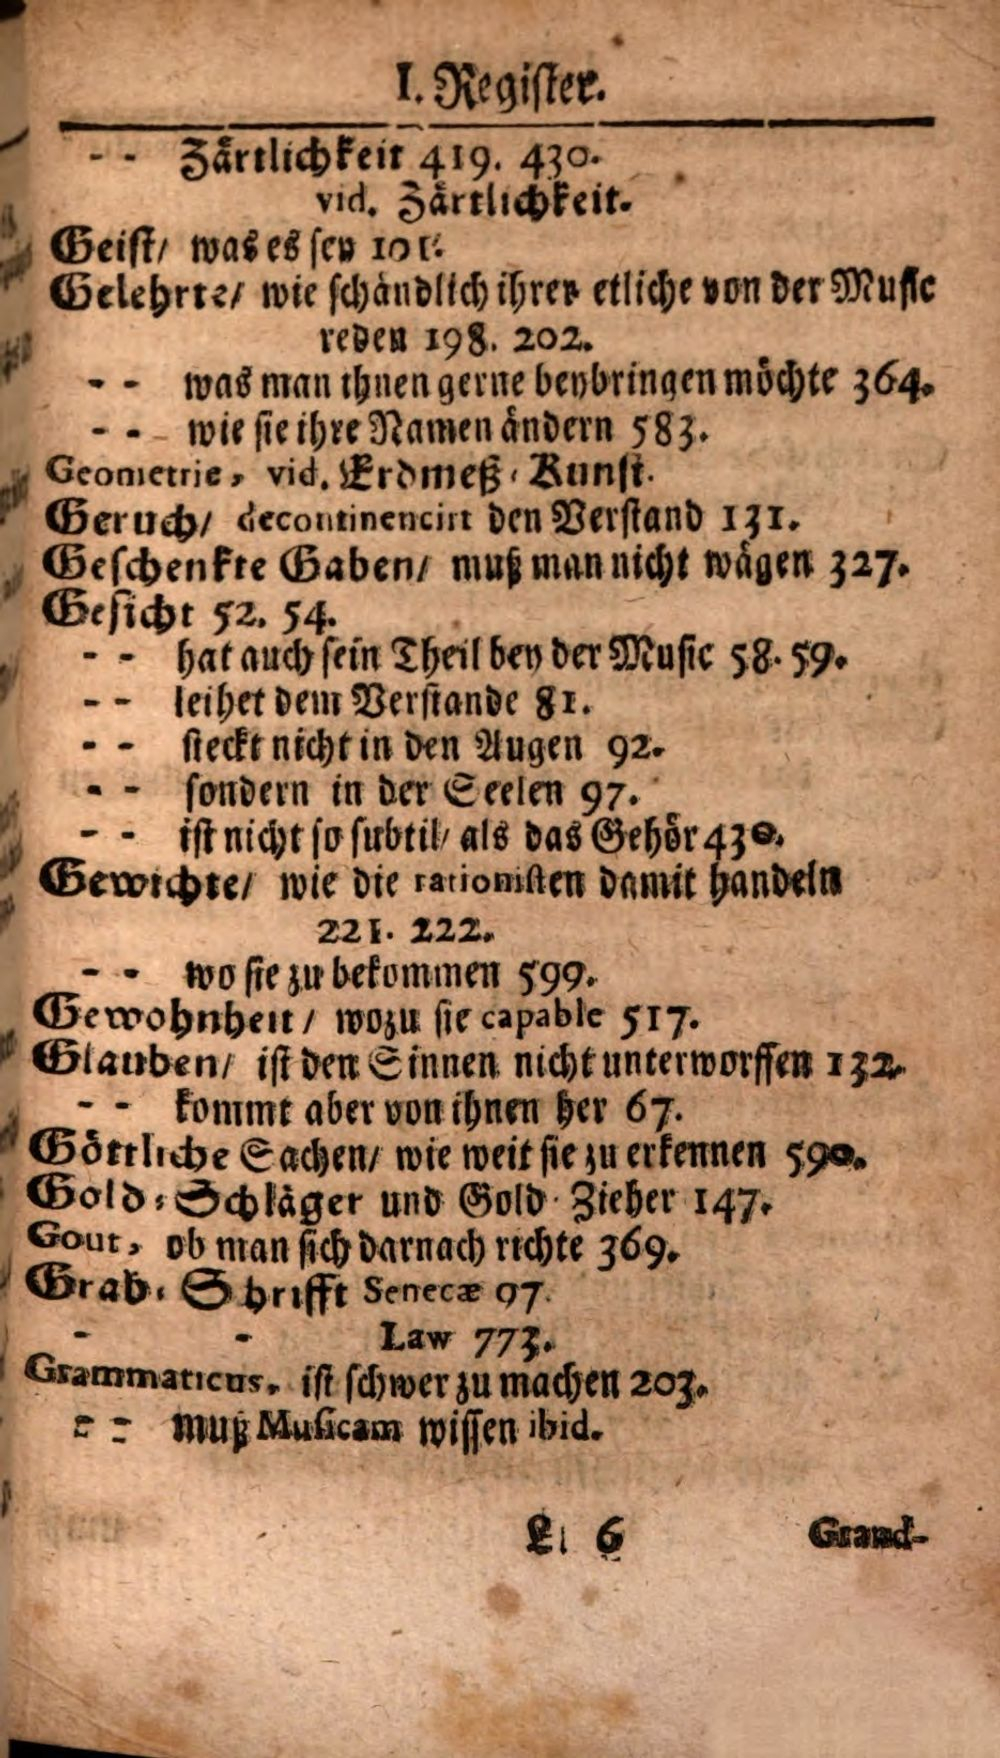 I. Register.
- - Zärtlichkeit 419. 430.
vid. Zärtlichkeit.
Geist/ was es sey 101.
Gelehrte/ wie schändlich ihrer etliche von der Music
reden 198. 202.
- - was man ihnen gerne beybringen möchte 364.
- - wie sie ihre Namen ändern 583.
Geometrie, vid. Erdmeß-Kunst.
Geruch/ decontinencirt den Verstand 131.
Geschenkte Gaben/ muß man nicht wägen 327.
Gesicht 52. 54.
- - hat auch sein Theil bey der Music 58. 59.
- - leihet dem Verstande 81.
- - steckt nicht in den Augen 92.
- - sondern in der Seelen 97.
- - ist nicht so subtil/ als das Gehör 430.
Gewichte/ wie die rationisten damit handeln
221. 222.
- - wo sie zu bekommen 599.
Gewohnheit/ wozu sie capable 517.
Glauben/ ist den Sinnen nicht unterworffen 132.
- - kommt aber von ihnen her 67.
Göttliche Sachen/ wie weit sie zu erkennen 590.
Gold-Schläger und Gold-Zieher 147.
Gout, ob man sich darnach richte 369.
Grab-Schrifft Senecæ 97.
- - Law 773.
Grammaticus, ist schwer zu machen 203.
- - muß Musicam wissen ibid.
Ll 6 Grand-